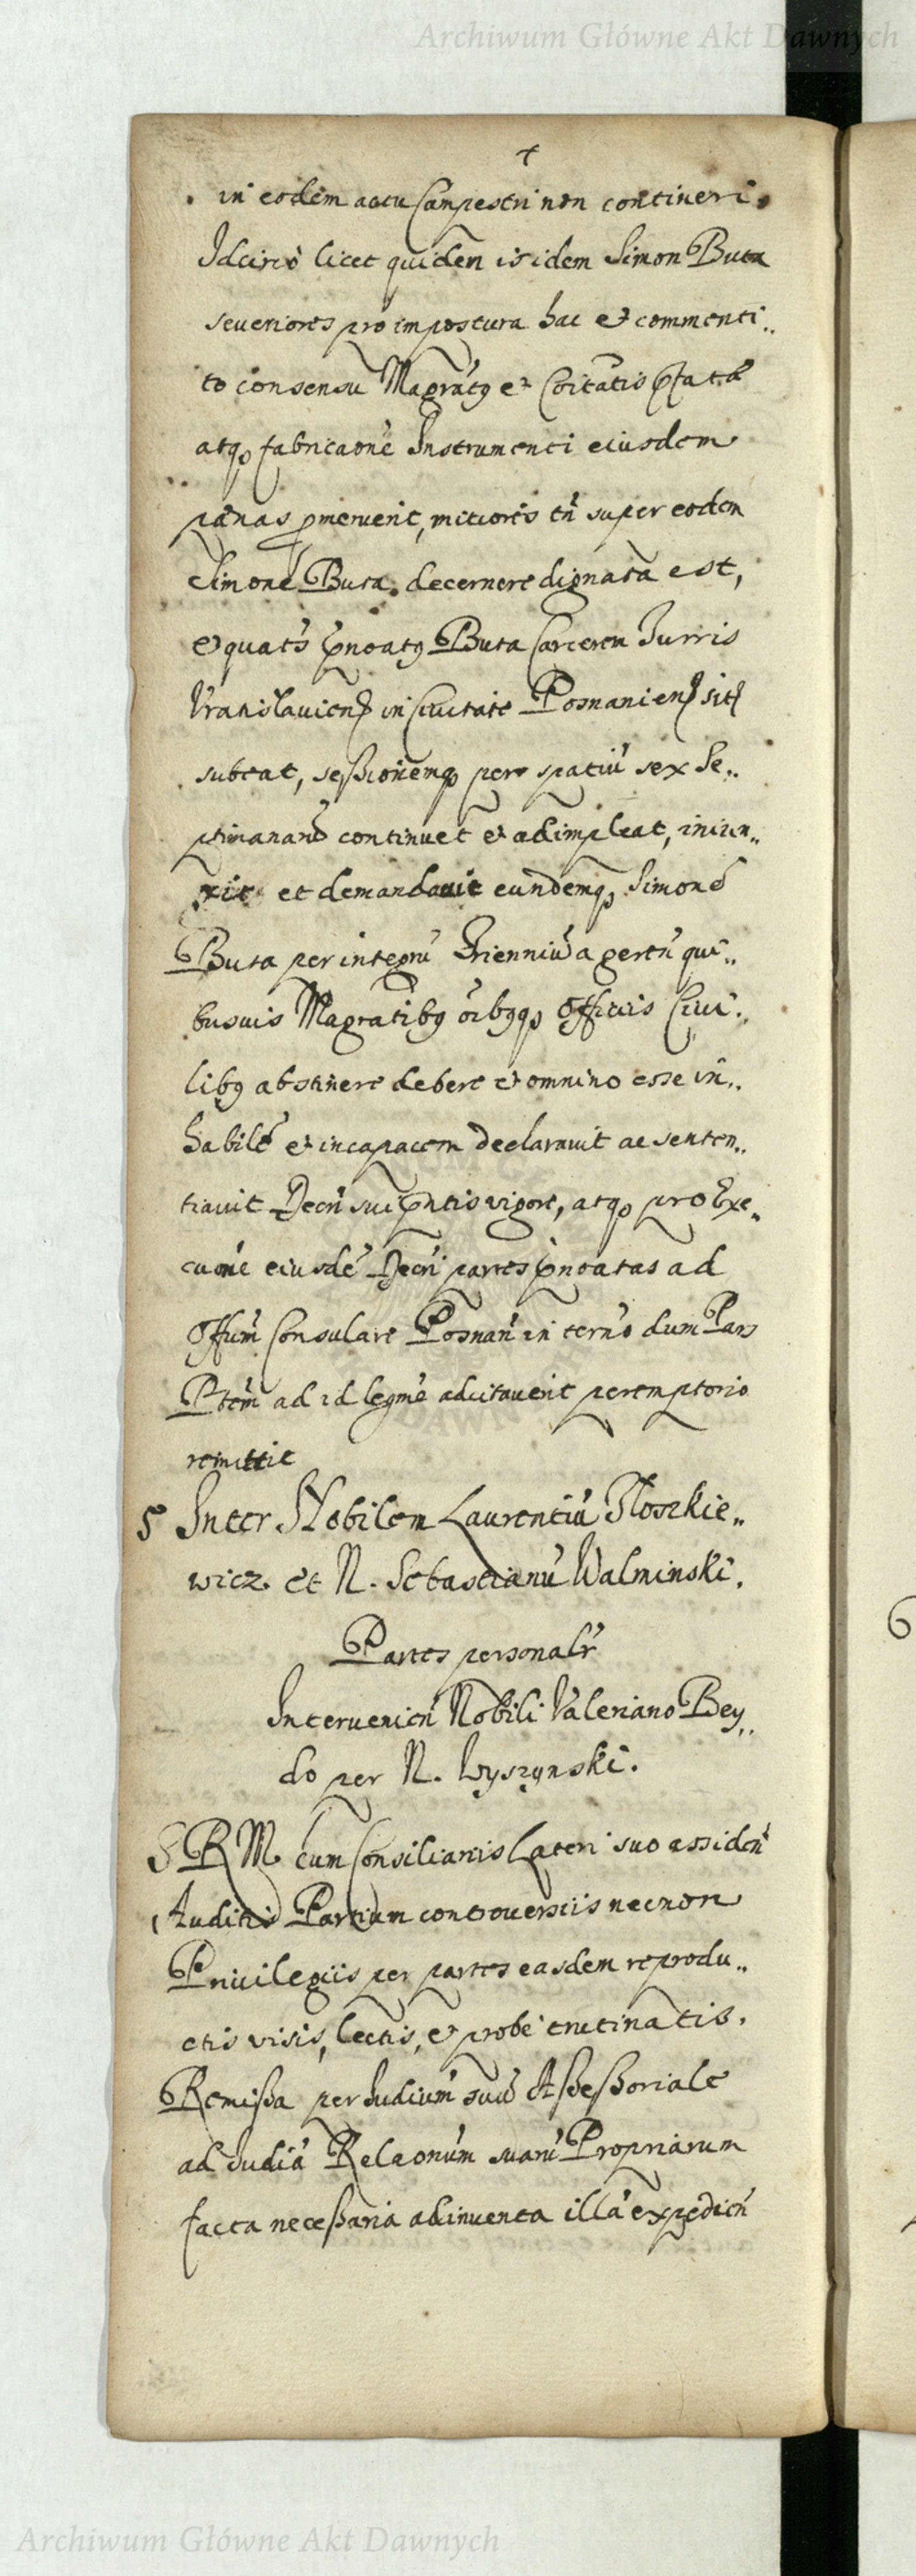 Archiwum Główne Akt Dawnych
+
in eodem actu Campestri non contineri,
Idcirco licet quidem isidem Simon Buta
seueriores pro impostura hac et commenti„
to consensu Magratus et Coitatis pfatae
atq fabricaone Instrumenti eiusdem
paenas pmeruerit, mitiores tn super eodem
Simone Buta decernere dignata est,
et quats pnoatus Buta Carcerem Turris
Vratislauien in Ciuitate Posnanien siti
subeat, sessionemq per spatiu sex Se„
ptimanaru continuet et adimpleat, iniun„
xit et demandauit eundemq Simone
Buta per integru Trienniu a geren qui„
busuis Magratibus oibusq Officiis Ciui„
libus abstinere debere et omnino esse in„
habile et incapacem declarauit ac senten„
tiauit Decri sui pntis vigore, atq pro Exe„
cuone eiusde Decri partes pnoatas ad
Offum Consulare Posnan in terno dum Pars
Ptem ad id legme adcitauerit peremptorio
remittit
5 Inter Nobilem Laurentiu Floszkie„
wicz et N. Sebastianu Walminski.
Partes personalr
Intervenien Nobili Valeriano Bey„
do per N. Wyszynski.
S R M cum Consiliariis Lateri suo assiden
Auditis Partium controuersiis necnon
Priuilegiis per partes easdem reprodu„
ctis visis, lectis, et probe trutinatis.
Remissa per Iudium suu Assessoriale
ad Iudia Relaonum suaru Propriarum
facta necessaria adinuenta illa expedien
Archiwum Główne Akt Dawnych